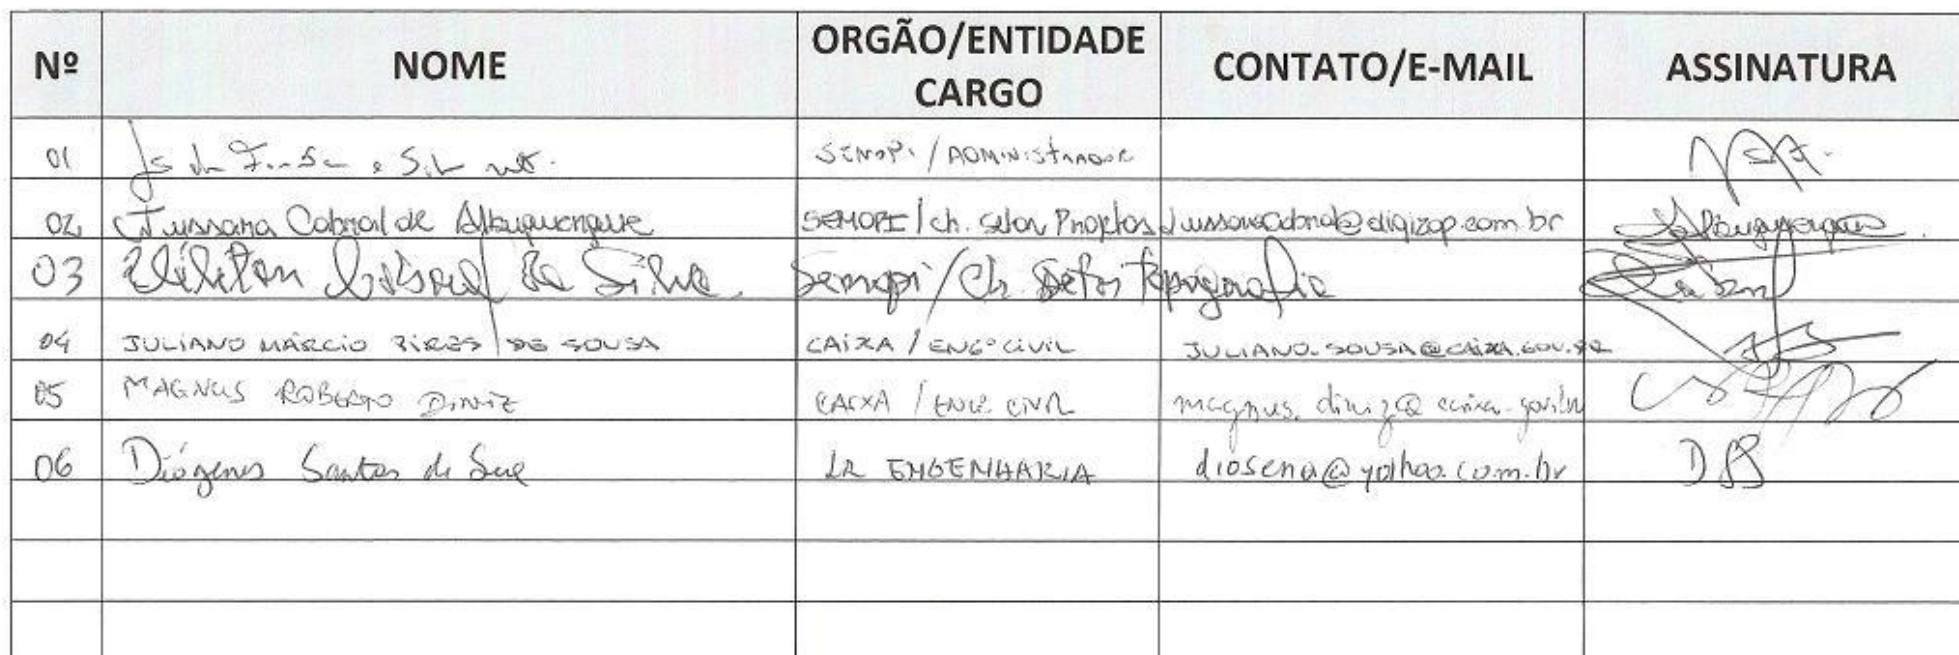 Nº NOME ORGÃO/ENTIDADE CARGO CONTATO/E-MAIL ASSINATURA
01 SEMOPI / ADMINISTRADOR
02 Jussara Cabral de Albuquerque SEMOPI / ch. setor Projetos @digizap.com.br Albuquerque
03 Cabral da Silva Semopi / Ch Setor topografia
04 JULIANO MÁRCIO PIRES DE SOUSA CAIXA / ENGº CIVIL JULIANO.SOUSA@CAIXA.GOV.BR
05 MAGNUS ROBERTO DINIZ CAIXA / ENGº CIVIL magnus.diniz@caixa.gov.br
06 Diógenes Santos de Sena LR ENGENHARIA diosena@yahoo.com.br DSS